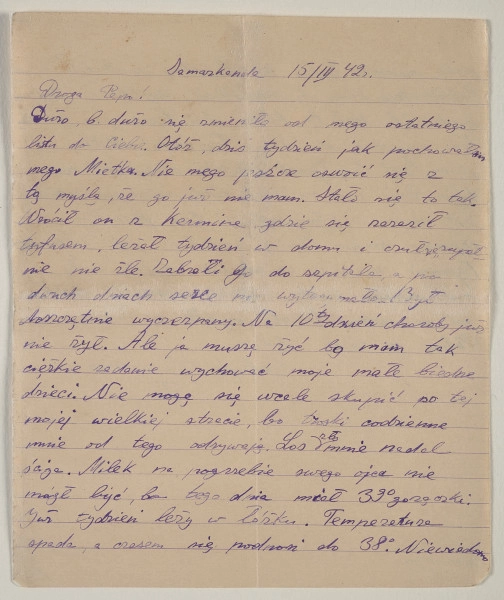 Samarkanda 15/IV 42r.
Droga Pepi!
Dużo, b. dużo się zmieniło od mego ostatniego
listu do Ciebie. Otóż, dziś tydzień jak pochowałam
mego Mietka. Nie mogę jeszcze oswoić się z
tą myślą, że go już nie mam. Stało się to tak.
Wrócił on z Kermine gdzie się zaraził
tyfusem, leżał tydzień w domu i czuł się
nie źle. Zabrali go do szpitala a po
dwuch dniach serce nie wytrzymało. Był
doszczętnie wyczerpany. Na 10ty dzień choroby już
nie żył. Ale ja muszę żyć bo mam tak
ciężkie zadanie wychować moje małe biedne
dzieci. Nie mogę się wcale skupić po tej
mojej wielkiej stracie, bo troski codzienne
mnie od tego odrywają. Los mnie nadal
ściga. Milek na pogrzebie swego ojca nie
mógł być, bo tego dnia miał 39° gorączki.
Już tydzień leży w łóżku. Temperatura
spada, a czasem się podnosi do 38°. Niewiadomo